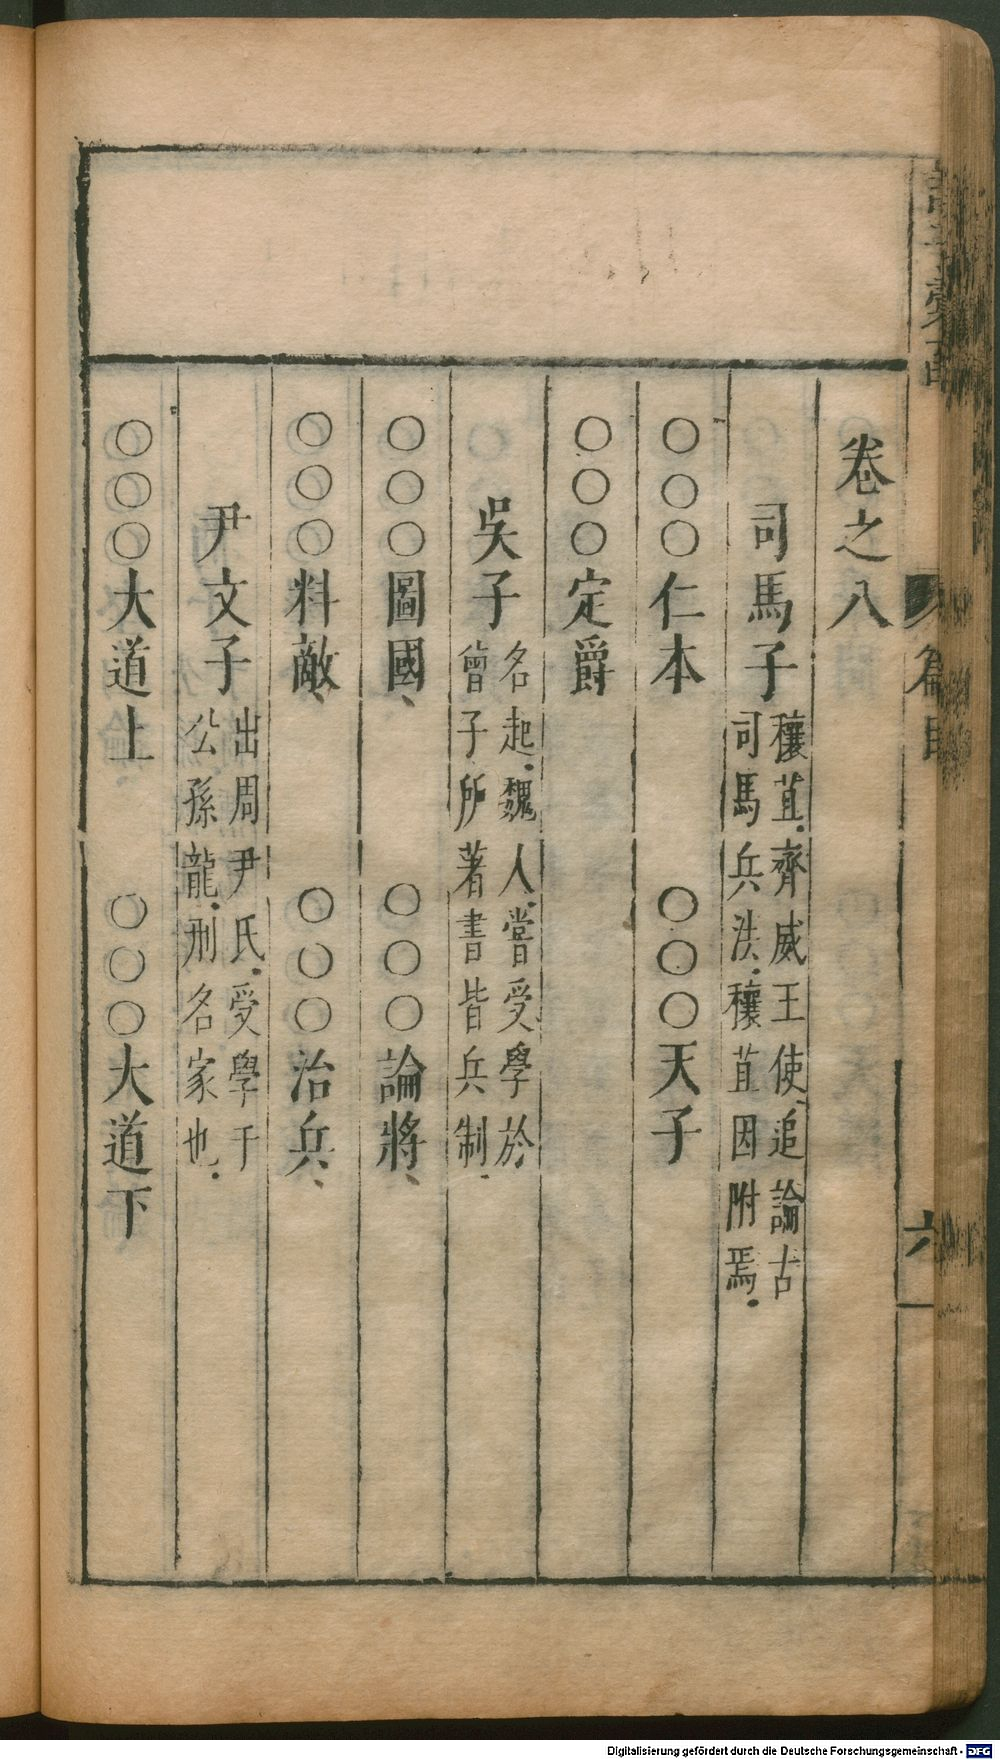 卷之八
司馬子 穰苴齊威王使追論古
司馬兵法穰苴因附焉
○○○仁本 ○○○天子
○○○定爵
吳子 名起魏人嘗受學於
曾子所著書皆兵制
○○○圖國 ○○○論將
○○○料敵 ○○○治兵
尹文子 出周尹氏受學于
公孫龍刑名家也
○○○大道上 ○○○大道下
篇目
六
Digitalisierung gefördert durch die Deutsche Forschungsgemeinschaft - DFG